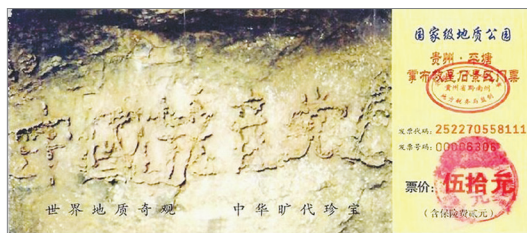 中國共产党
世界地质奇观 中华旷代珍宝
国家级地质公园
贵州·平塘
掌布救星石景区门票
贵州省黔南州
发票代码:252270558111
发票号码:00006306
票价:伍拾元
(含保险费贰元)